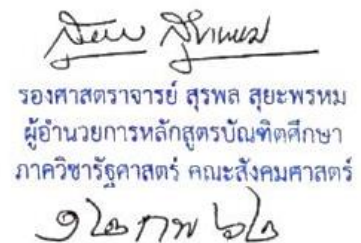 รองศาสตราจารย์ สุรพล สุยะพรหม
ผู้อำนวยการหลักสูตรบัณฑิตศึกษา
ภาควิชารัฐศาสตร์ คณะสังคมศาสตร์
๑๒ กพ ๖๒